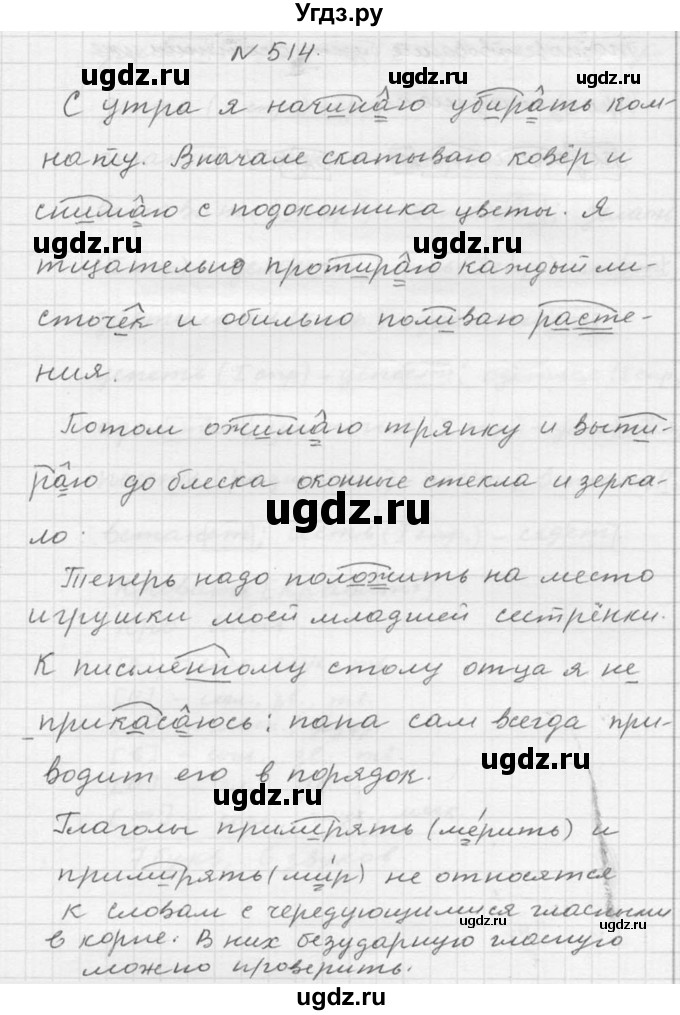 Угдз.ру
N 514.
ugdz.ru
ugdz.ru
С утра я начинаю убирать ком-
нату. Вначале скатываю ковёр и
снимаю с подоконника цветы. Я
ugdz.ru
ugdz.ru
тщательно протираю каждый ли-
сточек и обильно поливаю расте-
ugdz.ru
ния.
Потом ожимаю тряпку и выти-
раю до блеска оконные стекла и зерка-
ugdz.ru
ло.
Теперь надо положить на место
игрушки моей младшей сестрёнки.
К письменному столу отца я не
прикасаюсь: папа сам всегда при-
ugdz.ru
водит его в порядок.
ugdz.ru
Глаголы примирять (мерить) и
примирять (мир) не относятся
к словам с чередующимися гласными
в корне. В них безударную гласную
можно проверить.
ugdz.ru